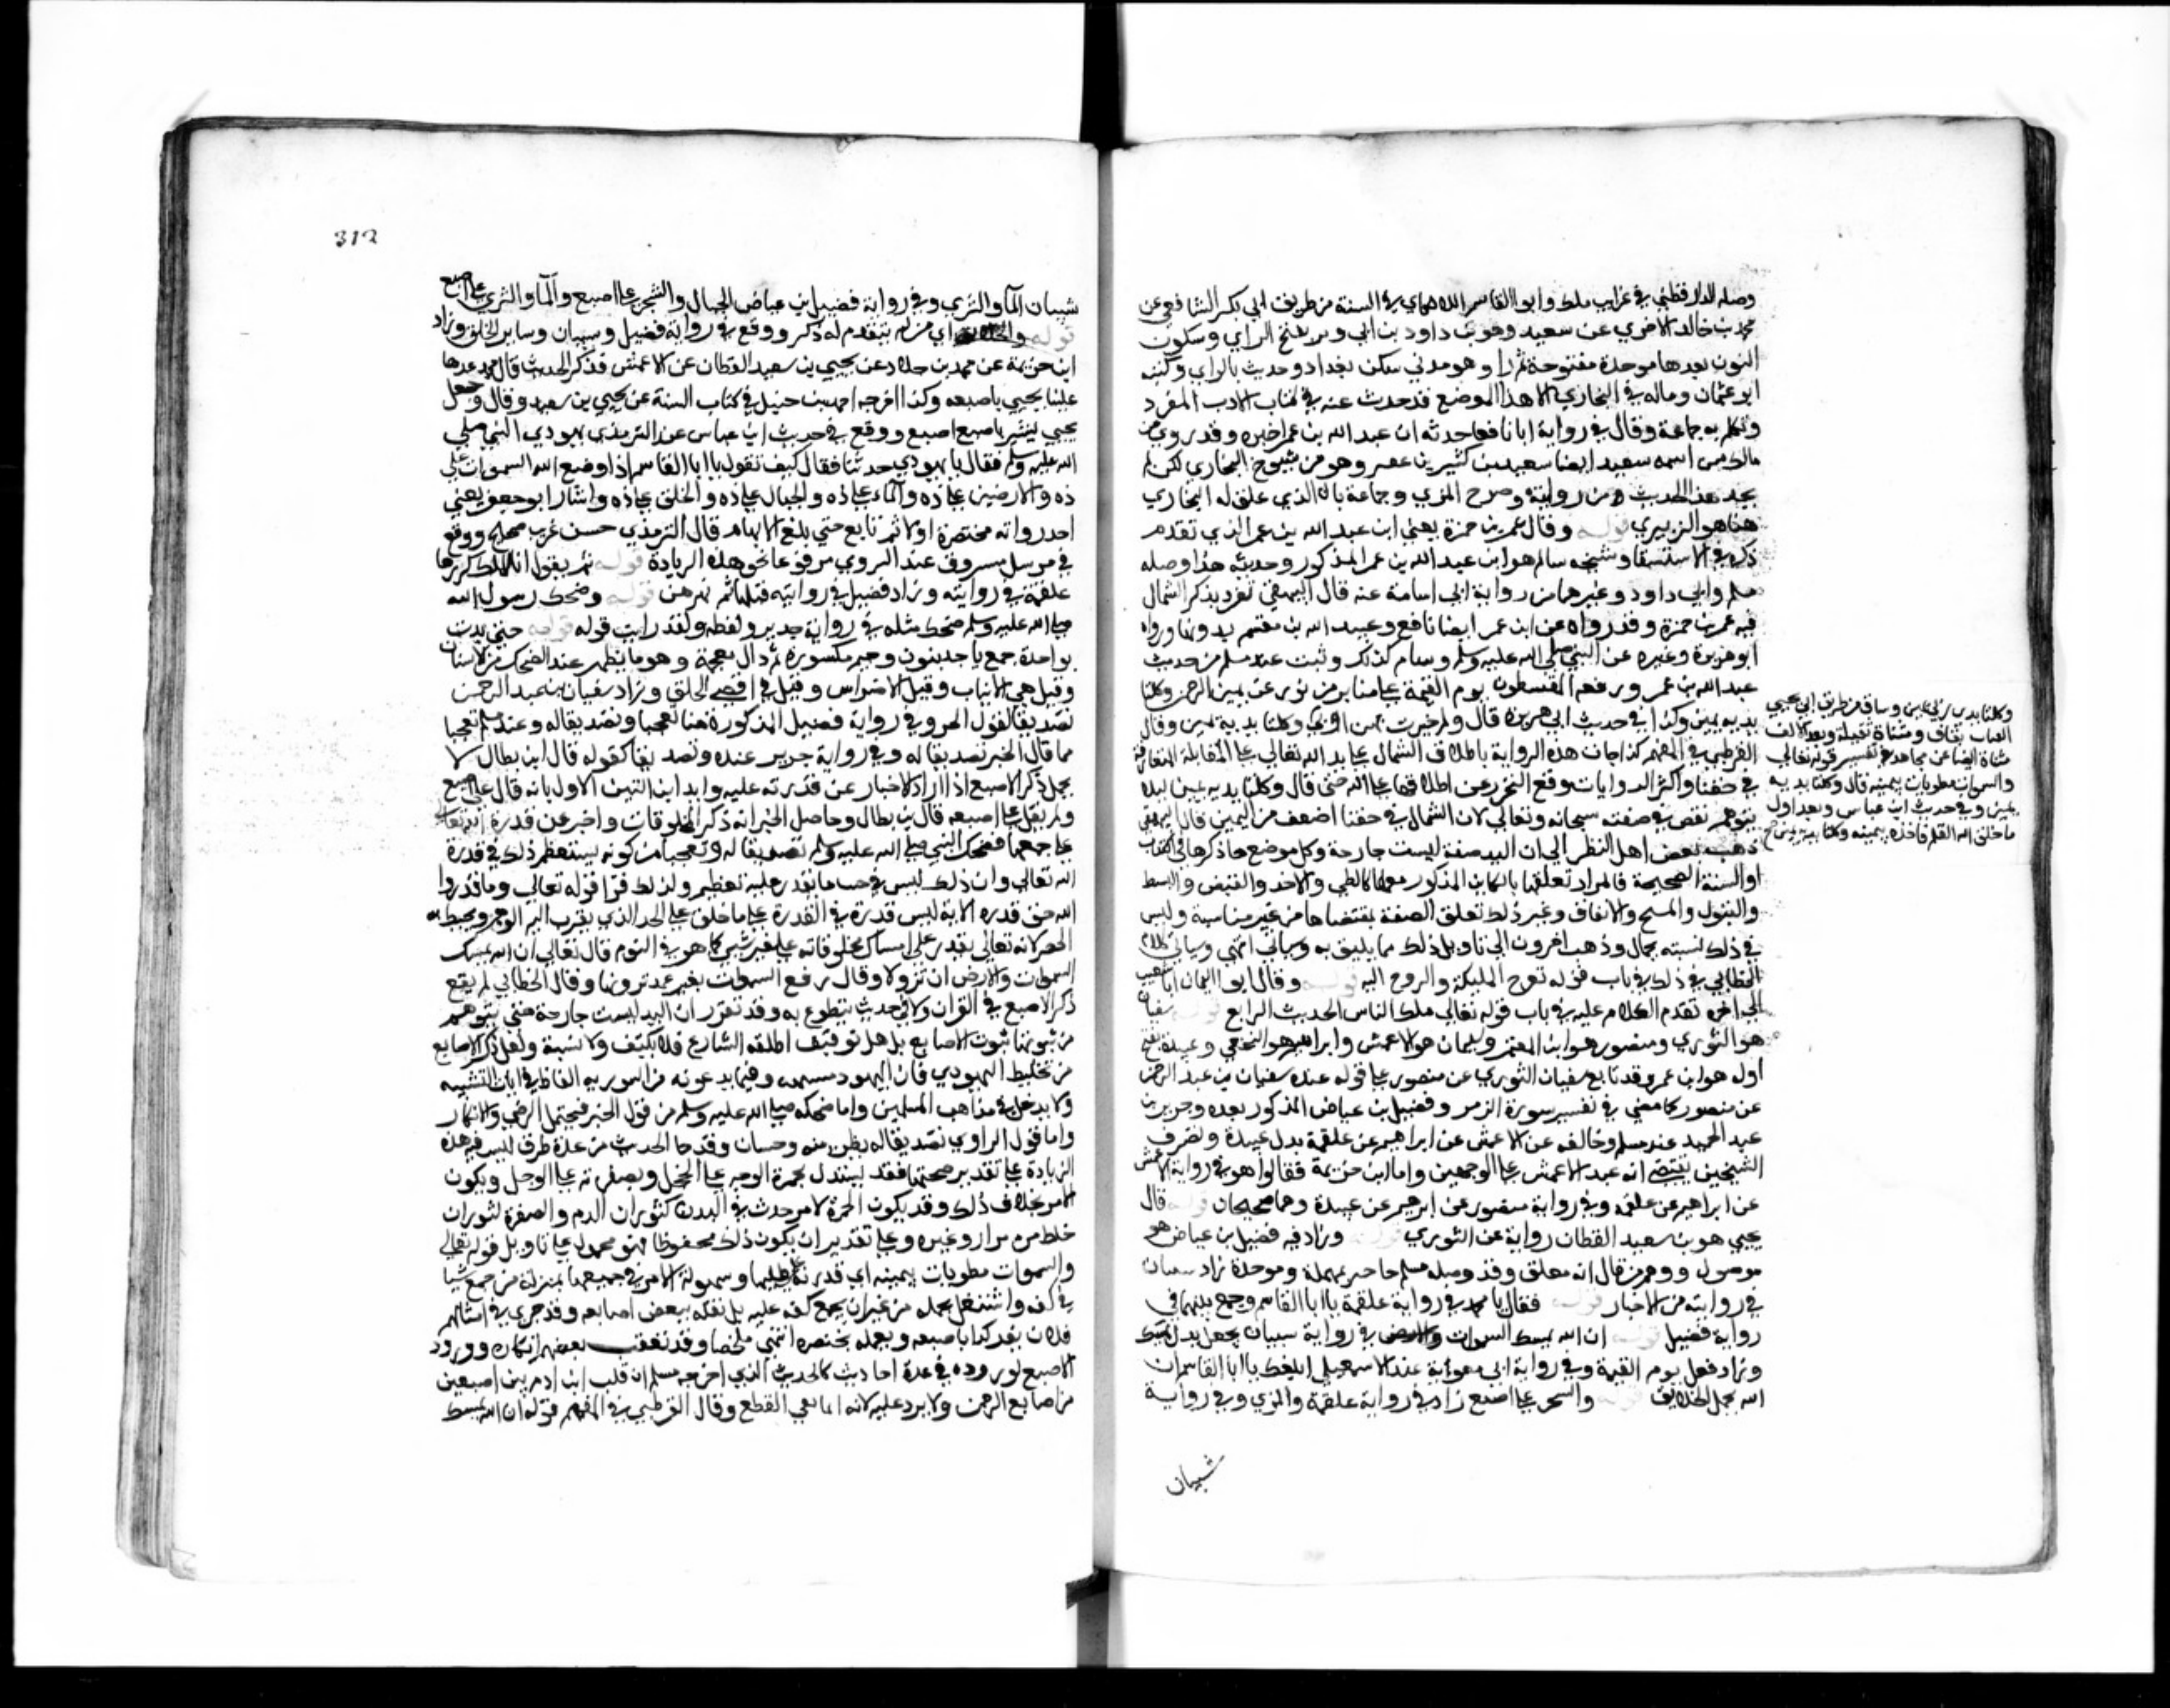 وصله الدارقطني في غرايب ملك وابو القاسم اللالكاي في السنة من طريق ابي بكر الشافعي عن
محمد بن خالد الاجري عن سعيد وهو بن داود بن ابي زنبر بفتح الزاي وسكون
النون بعدها موحدة مفتوحة ثم را وهو مدني سكن بغداد وحدث بالراي وكنيته
ابو عثمان وماله في البخاري الا هذا الموضع قد حدث عنه في كتاب الادب المفرد
وتكلم به جماعة وقال في رواية ابا نافعا حدثه ان عبد الله بن عمر اخبره وقد روي عن
مالك ممن اسمه سعيد ايضا سعيد بن كثير بن عفير وهو من شيوخ البخاري لكن لم
يجد هذا الحديث من روايته وصرح المزي وجماعة بان الذي علق له البخاري
هنا هو الزبيري قوله وقال عمر بن حمزة يعني ابن عبد الله بن عمر الذي تقدم
ذكره في الاستسقا وشيخه سالم هو ابن عبد الله بن عمر المذكور وحديثه هذا وصله
مسلم وابي داود وغيرهما من رواية ابي اسامة عنه قال البيهقي تفرد بذكر الشمال
فيه عمر بن حمزة وقد رواه عن ابن عمر ايضا نافع وعبيد الله بن مقسم بدونها ورواه
ابو هريرة وغيره عن النبي صلى الله عليه وسلم وسلم كذلك وثبت عند مسلم من حديث
عبد الله بن عمر ورفعه المقسطون يوم القيمة على منابر من نور عن يمين الرحمن وكلتا
يديه يمين وكذا في حديث ابي هريرة قال ولم خيرت يمين ربي وكلتا يديه يمين وقال
القرطبي في المفهم كذا جات هذه الرواية باطلاق الشمال على يد الله تعالي على المقابلة المتعارفة
في حقنا واكثر الروايات وقع التحرز عن اطلاقها على الله حتى قال وكلتا يديه يمين ليلا
يتوهم نقص في صفته سبحانه وتعالي لان الشمال في حقنا اضعف من اليمين قال البيهقي
ذهب بعض اهل النظر الي ان اليد صفة ليست جارحة وكل موضع جا ذكرها في الكتاب
او السنة الصحيحة فالمراد تعلقها بالكاين المذكور معها كالطي والاخذ والقبض والبسط
والقبول والمسح والانفاق وغير ذلك تعلق الصفة بمقتضاها من غير مناسبة وليس
في ذلك تشبيه بحال وذهب اخرون الي تاويل ذلك بما يليق به وسياتي انتهي وسياتي كلام
الخطابي في ذلك في باب قوله تعرج المليكة والروح اليه قوله وقال ابو اليمان ابا شعيب
الي اخره تقدم الكلام عليه في باب قوله تعالي ملك الناس الحديث الرابع قوله سفيان
هو الثوري ومنصور هو ابن المعتمر وسليمان هو الاعمش وابراهيم هو النخعي وعبيدة بفتح
اوله هو ابن عمرو قد تابع سفيان الثوري عن منصور على قوله عبيدة سفيان بن عبد الرحمن
عن منصور كما مضي في تفسير سورة الزمر وفضيل بن عياض المذكور بعده وجرير بن
عبد الحميد عند مسلم وخالفه عن الاعمش عن ابراهيم عن علقمة بدل عبيدة وتصرف
الشيخين يقتضي انه عند الاعمش على الوجهين واما ابن خزيمة فقالوا هو في رواية الاعمش
عن ابراهيم عن علقمة وفي رواية منصور عن ابرهيم عن عبيدة وهما صحيحان قوله قال
يحيي هو بن سعيد القطان رواية عن الثوري قوله وزاد فيه فضيل بن عياض هو
موصول ووهم من قال انه معلق وقد وصله مسلم حا حبر بمهملة وموحدة زاد سفيان
في روايته من الاحبار قوله فقال يا محمد في رواية علقمة يا ابا القاسم وجمع بينهما في
رواية فضيل قوله ان الله يمسك السموات والارض في رواية سيبان يجعل بدل يمسك
وزاد فعل يوم القيمة وفي رواية ابي معوية عند الاسمعيلي ابلغك يا ابا القاسم ان
الله يجل الخلايق قوله والسحر على اصبع زاد في رواية علقمة والمزي وفي رواية
شيبان
وكلتا يدي ربي يمين وساق من طريق ابي يحيي
القتات بقاف ومثناة ثقيلة وبعد الالف
مثناة ايضا عن مجاهد في تفسير قوله تعالي
والسموات مطويات بيمينه قال وكلتا يديه
يمين وفي حديث ابن عباس وبعد اول
ما خلق الله القلم فاخذه بيمينه وكلتا يديه يمين صح
312
شيبان المآ والثري وفي رواية فضيل بن عياض الجبال والشجر على اصبع والمآ والثري على اصبع
قوله والخلايق اي من لم يتقدم له ذكر ووقع في رواية فضيل وسيبان وساير الخلق وزاد
ابن خزيمة عن محمد بن خلاد عن يحيي بن سعيد القطان عن الاعمش فذكر الحديث قال محمد عدها
علينا يحيي باصبعه وكذا اخرجه احمد بن حنبل في كتاب السنة عن يحيي بن سعيد وقال وجعل
يحيي يشير باصبع اصبع ووقع في حديث ابن عباس عند الترمذي يهودي النبي صلى
الله عليه وسلم فقال يا يهودي حدثنا فقال كيف تقول يا ابا القاسم اذا وضع الله السموات على
ذه والارضين على ذه والماء على ذه والجبال على ذه والخلق على ذه واشار ابو جعفر يعني
احد رواته مختصرة اولا ثم تابع حتي بلغ الابهام قال الترمذي حسن غريب صحيح ووقع
في مرسل مسروق عند الهروي مرفوعا نحو هذه الزيادة قوله ثم يقول انا الملك كررها
علقمة في روايته وزاد فضيل في روايته قبلها ثم يهزهن قوله وضحك رسول الله
صلى الله عليه وسلم ضحك مثله في رواية جرير ولفظه ولقد رايت قوله قوله حتي بدت
نواجذه جمع ناجذ بنون وجيم مكسورة ثم ذال معجمة وهو ما يظهر عند الضحك من الاسنان
وقيل هي الانياب وقيل الاضراس وقيل في اقصي الحلق وزاد سفيان بن عبد الرحمن
تصديقا لقول الحبر وفي رواية فضيل المذكورة هنا تعجبا وتصديقا له وعند مسلم تعجبا
مما قال الحبر تصديقا له وفي رواية جرير عنده وتصديقا كقوله قال ابن بطال لا
يحمل ذكر الاصبع اذا اراد الاخبار عن قدرته عليه وايد ابن التين الاول بانه قال على اصبع
ولم يقل على اصبعه قال بن بطال وحاصل الخبر انه ذكر المخلوقات واخبر عن قدرة الله تعالي
على جمعها فضحك النبي صلى الله عليه وسلم تصديقا له وتعجبا من كونه يستعظم ذلك في قدرة
الله تعالي وان ذلك ليس في جنب ما يقدر عليه بعظيم ولذلك قرا قوله تعالي وما قدروا
الله حق قدره الاية ليس قدرة في القدرة على ما خلق على الحد الذي يقرب اليه الوهم ويحيط به
الحصر لانه تعالي يقدر على امساك مخلوقاته على غير شي كما هو في اليوم قال تعالي ان الله يمسك
السموات والارض ان تزولا وقال رفع السموات بغير عمد ترونها وقال الخطابي لم يقع
ذكر الاصبع في القران ولا في حديث مقطوع به وقد تقرر ان اليد ليست جارحة حتي يتوهم
من ثبوتها ثبوت الاصابع بل هو توقيف اطلقه الشارع فلا يكيف ولا يشبه ولعل ذكر الاصابع
من تخليط اليهودي فان اليهود مشبهة وفيما يدعونه من التوريه الفاظ في باب التشبيه
ولا يدخل في مذاهب المسلمين واما ضحكه صلى الله عليه وسلم من قول الحبر فيحتمل الرضي والانكار
واما قول الراوي تصديقا له بظن منه وحسبان وقد جا الحديث من عدة طرق ليس فيه هذه
الزيادة على تقدير صحتها فقد يستدل بحمرة الوجه على الخجل وبصفرته على الوجل ويكون
الامر بخلاف ذلك وقد يكون الحمرة لامر حدث في البدن كثوران الدم والصفرة لثوران
خلط من مرار وغيره وعلى تقدير ان يكون ذلك محفوظا فهو محمول على تاويل قوله تعالي
والسموات مطويات بيمينه اي قدرته على طيها وسهولة الامر في جمعها بمنزلة من جمع شيا
في كفه واشتغل بحمله من غير ان يجمع كفه عليه بل نقله ببعض اصابعه وقد جري في امثالهم
فلان يفعل كذا باصبعه ويعمله بخنصره انتهي ملخصا وقد تعقب بعضهم انكاره وورود
الاصبع لوروده في عدة احاديث كالحديث الذي اخرجه مسلم ان قلب ابن ادم بين اصبعين
من اصابع الرحمن ولا يرد عليه لانه انما نفي القطع وقال القرطبي في المفهم قوله ان الله يمسك